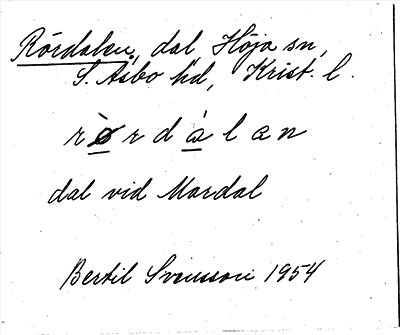 Rördalen, dal, Höja sn,
S. Åsbo hd, Krist. l.
rø̀rdálan
dal vid Mardal
Bertil Svensson 1954